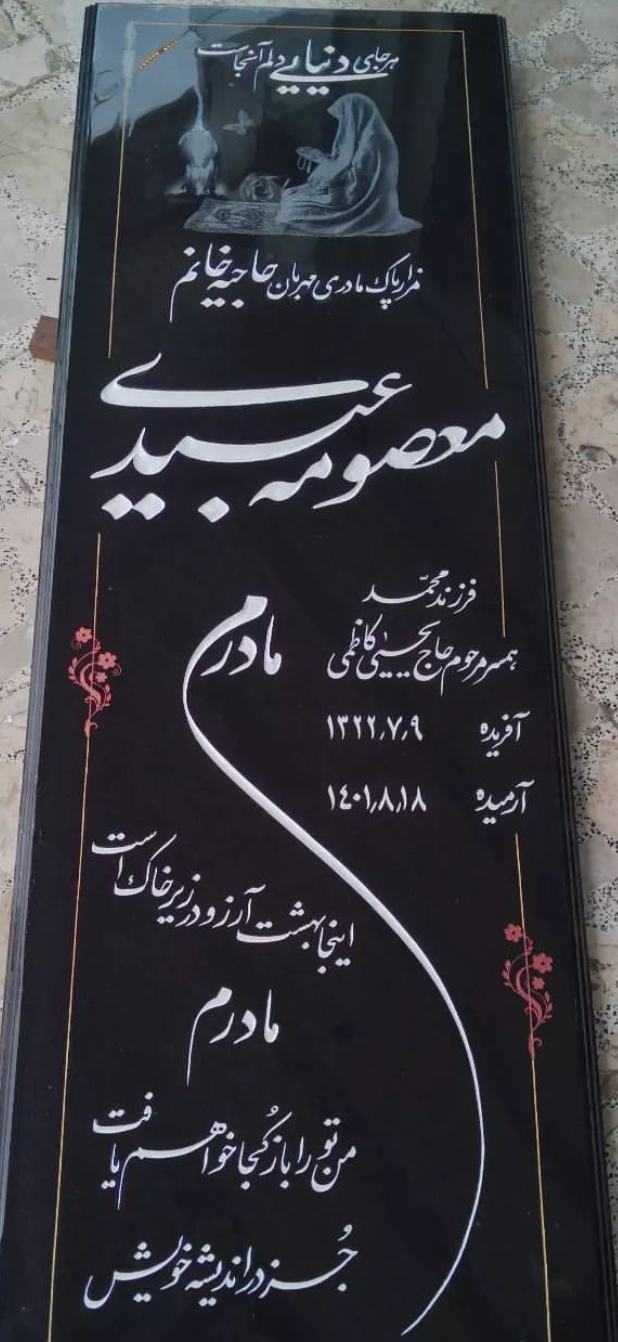 هر جای دنیایی دلم آنجاست
مزار پاک مادری مهربان حاجیه خانم
معصومه عبیدی
فرزند محمّد
همسر مرحوم حاج یحیی کاظمی
آفریده ۱۳۲۲٫۷٫۹
آرمیده ۱٤۰۱٫۸٫۱۸
مادرم
اینجا بهشت آرزو در زیر خاک است
مادرم
من تو را باز کُجا خواهم یافت
جُز در اندیشه خویش